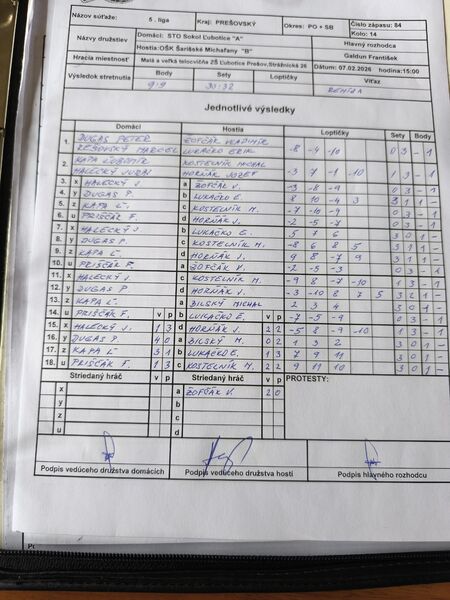 Názov súťaže: 5. liga Kraj: PREŠOVSKÝ Okres: PO + SB Číslo zápasu: 84
Kolo: 14
Názvy družstiev Domáci: STO Sokol Ľubotice "A" Hlavný rozhodca
Hostia: OŠK Šarišské Michaľany "B" Galdun František
Hracia miestnosť Malá a veľká telocvičňa ZŠ Ľubotice Prešov, Strážnická 26 Dátum: 07.02.2026 hodina: 15:00
Výsledok stretnutia Body Sety Loptičky Víťaz
9:9 REMÍZA
Jednotlivé výsledky
Domáci Hostia Loptičky Sety Body
1. DUGAS PETER ŽOFČÁK VLADIMÍR
REŠOVSKÝ MARCEL LUKAČKO ERIK -8 -4 -10 0 3 - 1
2. KAPA ĽUBOMÍR KOSTELNÍK MICHAL
HALECKÝ JURAJ HORŇÁK JOZEF -3 7 -1 -10 1 3 - 1
3. x HALECKÝ J. a ŽOFČÁK V. -3 -8 -9 0 3 - 1
4. y DUGAS P. b LUKAČKO E. 8 10 -4 3 3 1 1 -
5. z KAPA Ľ. c KOSTELNÍK M. -7 -10 -9 0 3 - 1
6. u PRIŠČÁK F. d HORŇÁK J. -2 -5 -7 0 3 - 1
7. x HALECKÝ J. b LUKAČKO E. 5 7 6 3 0 1 -
8. y DUGAS P. c KOSTELNÍK M. -8 6 8 5 3 1 1 -
9. z KAPA Ľ. d HORŇÁK J. 9 8 -7 9 3 1 1 -
10. u PRIŠČÁK F. a ŽOFČÁK V. -2 -5 -3 0 3 - 1
11. x HALECKÝ J. c KOSTELNÍK M. -9 8 -7 -10 1 3 - 1
12. y DUGAS P. d HORŇÁK J. -3 -10 8 7 5 3 2 1 -
13. z KAPA Ľ. a BILSKÝ MICHAL 2 3 4 3 0 1 -
14. u PRIŠČÁK F. v p b LUKAČKO E. v p -7 -5 -9 0 3 - 1
15. x HALECKÝ J. 1 3 d HORŇÁK J. 2 2 -5 8 -9 -10 1 3 - 1
16. y DUGAS P. 4 0 a BILSKÝ M. 0 2 1 3 2 3 0 1 -
17. z KAPA Ľ. 3 1 b LUKAČKO E. 1 3 7 9 11 3 0 1 -
18. u PRIŠČÁK F. 1 3 c KOSTELNÍK M. 2 2 9 11 10 3 0 1 -
Striedaný hráč v p Striedaný hráč v p PROTESTY:
x a ŽOFČÁK V. 2 0
y b
z c
u d
Podpis vedúceho družstva domácich Podpis vedúceho družstva hostí Podpis hlavného rozhodcu